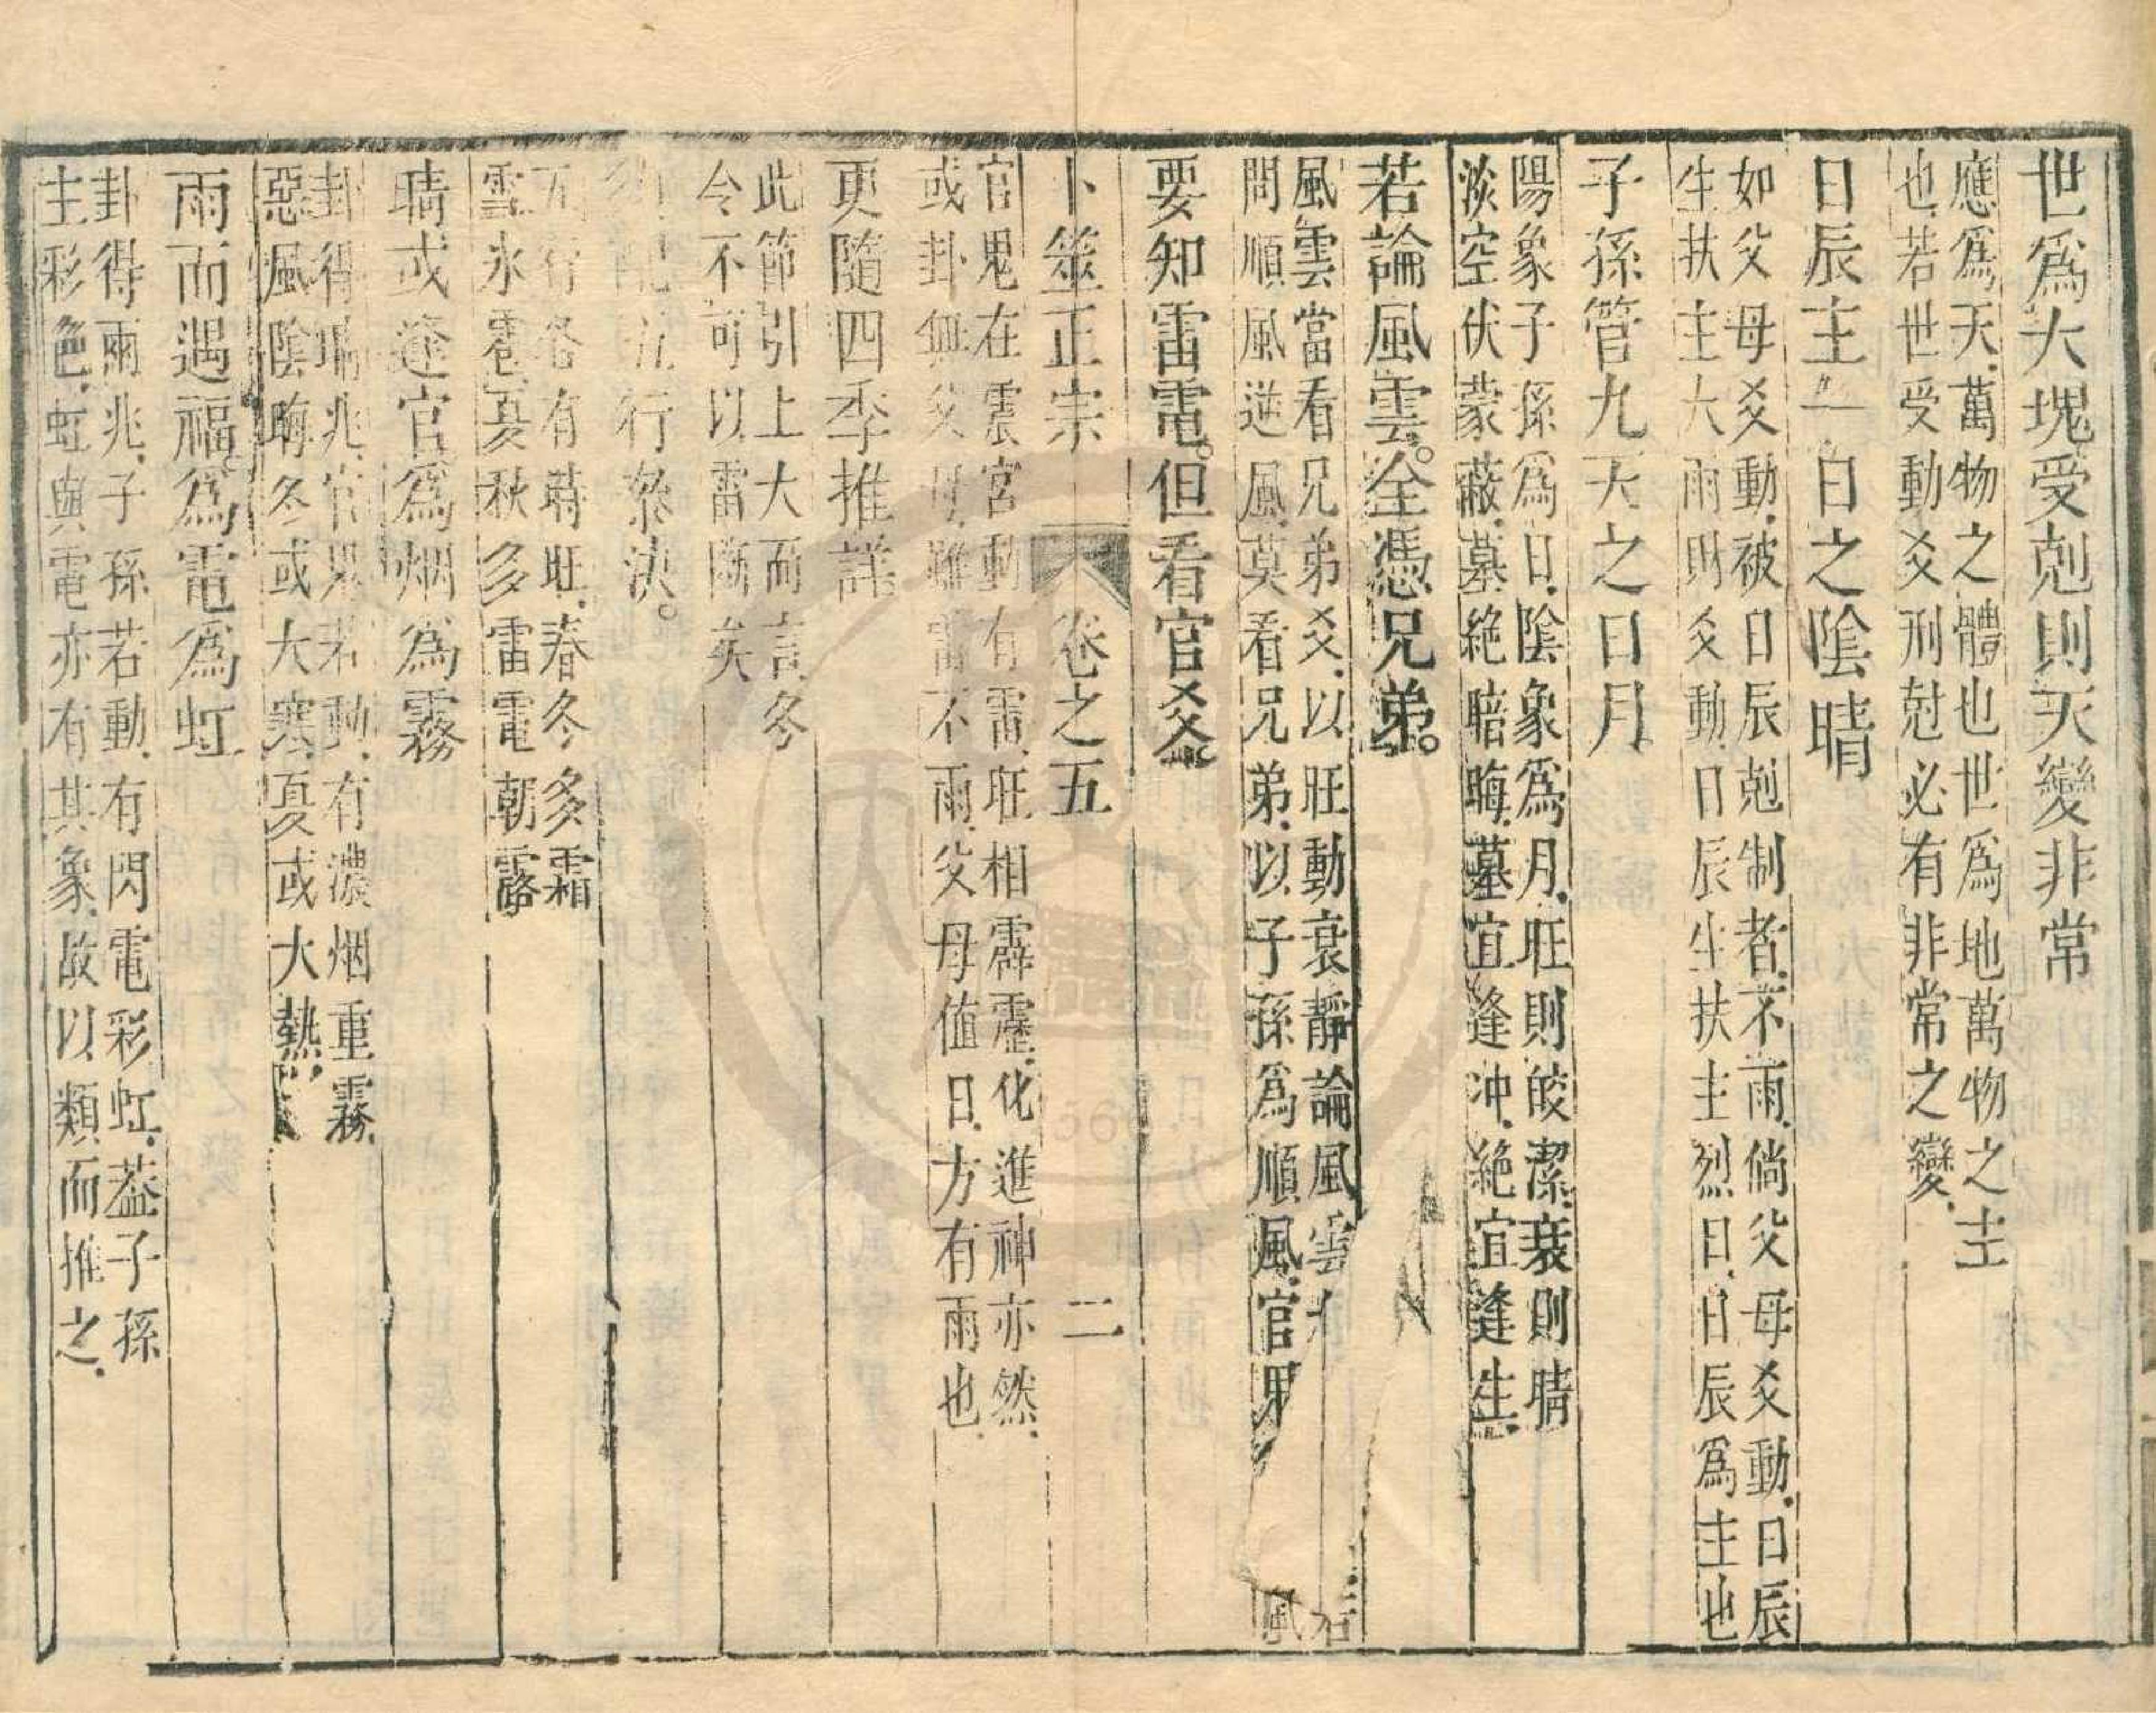 世爲大塊受剋則天變非常
應爲天萬物之體也世爲地萬物之主
也若世受動爻刑尅必有非常之變
日辰主一日之陰晴
如父母爻動被日辰剋制者不雨倘父母爻動日辰
生扶主大雨財爻動日辰生扶主烈日日辰爲主也
子孫管九天之日月
陽象子孫爲日陰象爲月旺則皎潔衰則晴
淡空伏蒙蔽墓絶暗晦墓宜逢冲絶宜逢生
若論風雲。全憑兄弟。
風雲當看兄弟爻以旺動衰靜論風雲
問順風逆風莫看兄弟以子孫爲順風官 風
要知雷電。但看官爻。
卜筮正宗 卷之五 二
官鬼在震宮動有雷旺相霹靂化進神亦然
或卦無父母雖雷不雨父母值日方有雨也
更隨四季推詳
此節引上大而言冬
令不可以雷斷矣
配五行叅決。
五行各有時旺春冬多霜
雪氷雹夏秋多雷電朝露
晴或逢官爲烟爲霧
卦得晴兆官鬼若動有濃烟重霧
惡風陰晦冬或大寒夏或大熱
雨而遇福。爲電爲虹
卦得雨兆子孫若動有閃電彩虹葢子孫
主彩色虹與電亦有其象故以類而推之